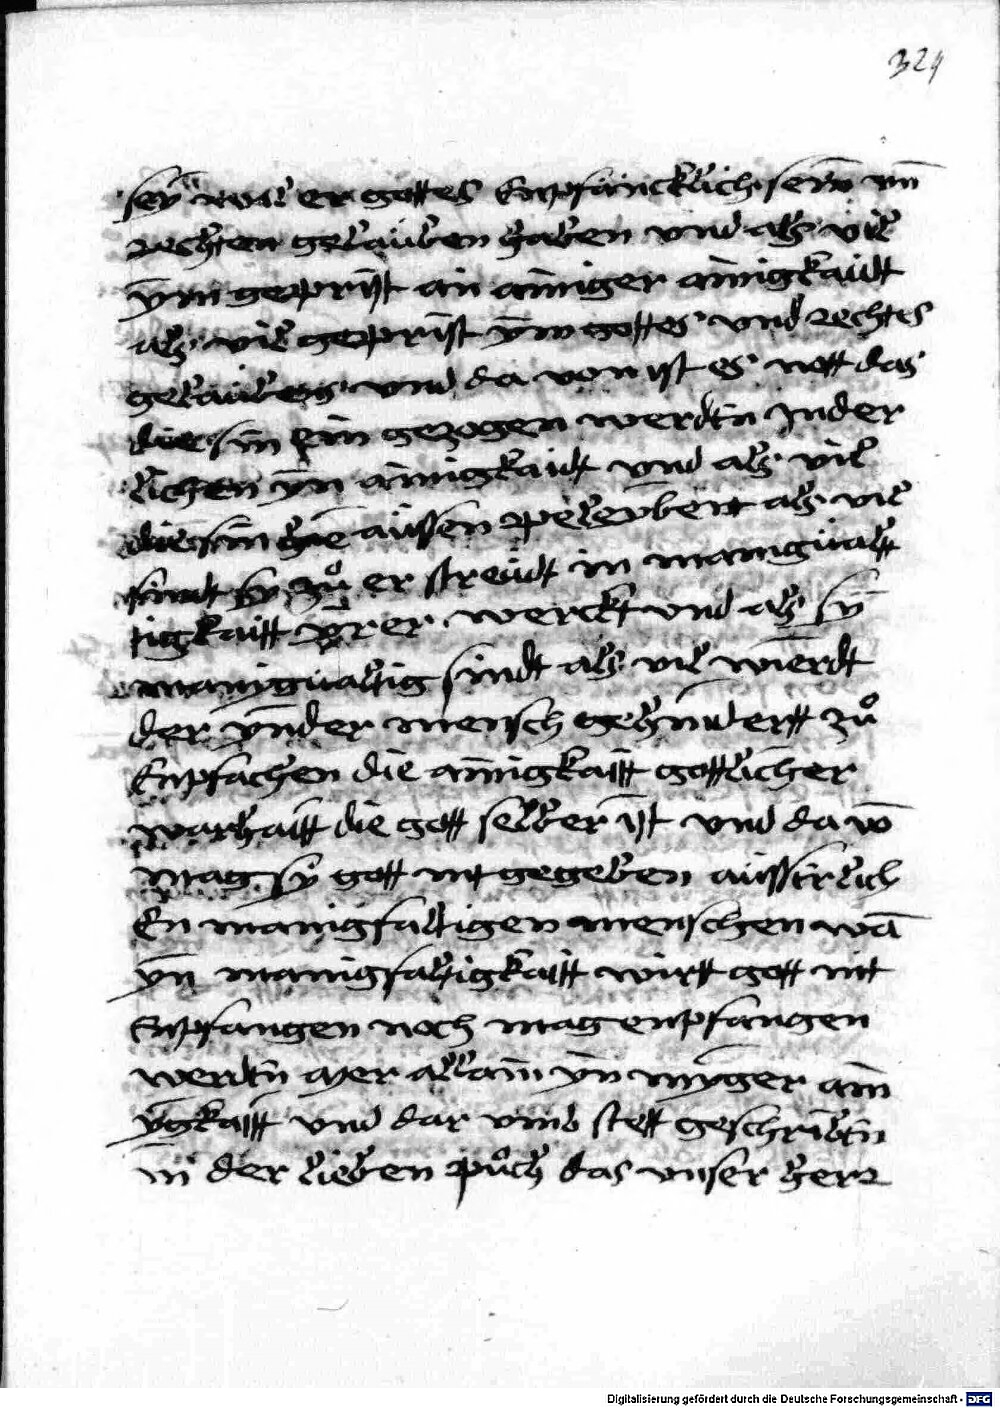 324
seÿ wil er gottes Enpfäncklich sein vn̄
rechten gelauben haben vnd als vil
ym geprist an ainiger ainigkaitt
als vil geprist ym gottes vnd rechtes
gelaubens vnd da von ist es nott das
die sin ein gezogen werdn̄ Inder
lichen yn ainigkaidt vnd als vil
die sin hie aussen peleybent als vil
sindt sy zů er streudt in manigual
tigkaitt yrer werckt vnd als sÿ
manigualtig sindt als vil wierdt
der ynder mensch gehindertt zů
Enpfachen die ainigkaitt gottlicher
warhaitt die gott selber ist vnd da vō
mag sÿ gott nit gegeben ausserlich
En manigfaltigen menschen wā
yn manigfaltigkaitt wirtt gott nit
Enpfangen noch mag enpfangen
werdn̄ aber allain yn ynniger ain
ygkaitt vnd dar vmb stett geschribn̄
in der lieben půch das vnser herr
Digitalisierung gefördert durch die Deutsche Forschungsgemeinschaft - DFG